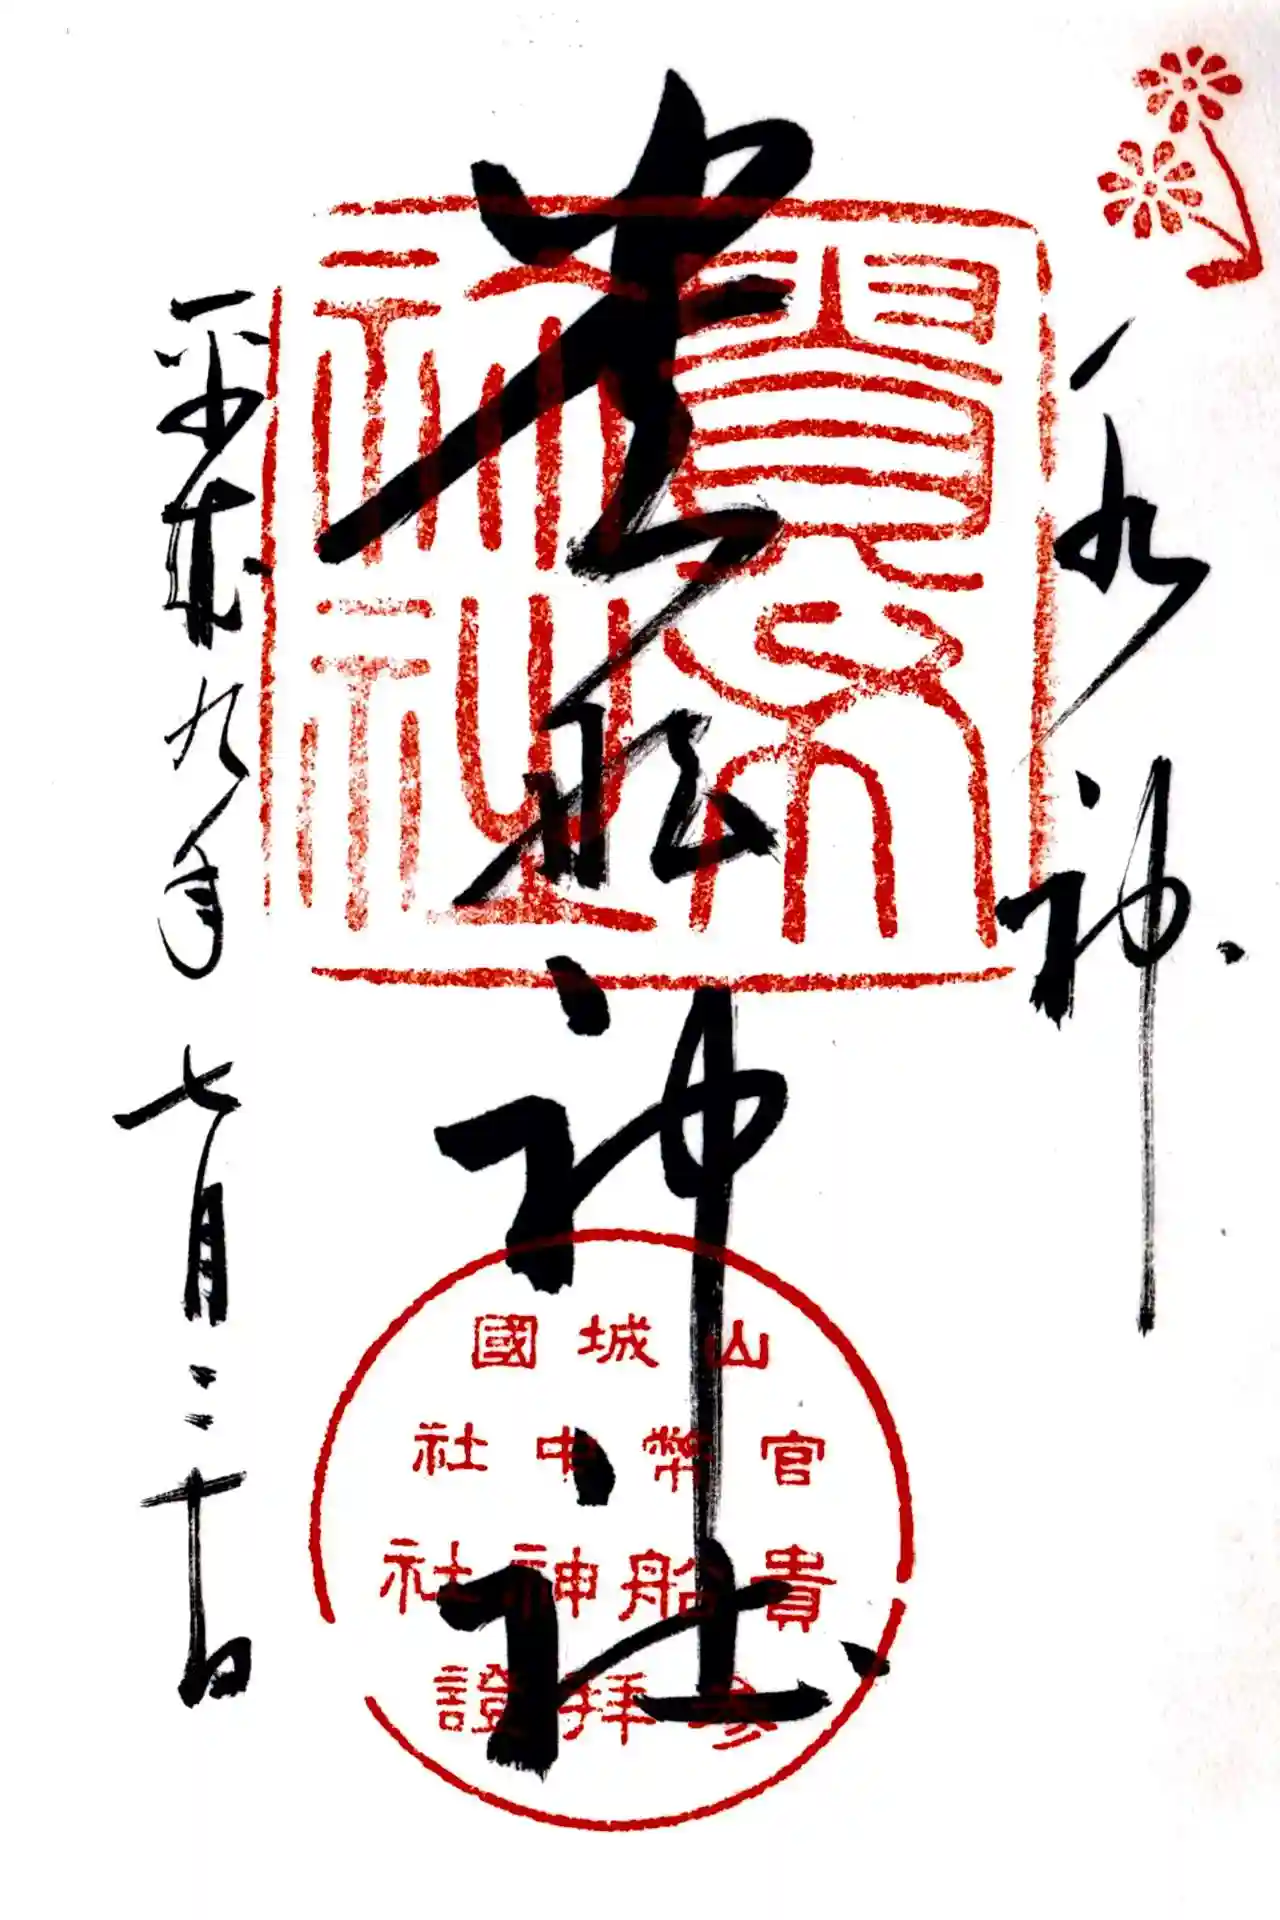 水神
貴船神社
平成九年七月二十日
貴布
祢社
山城國
官幣中社
貴船神社
参拝證